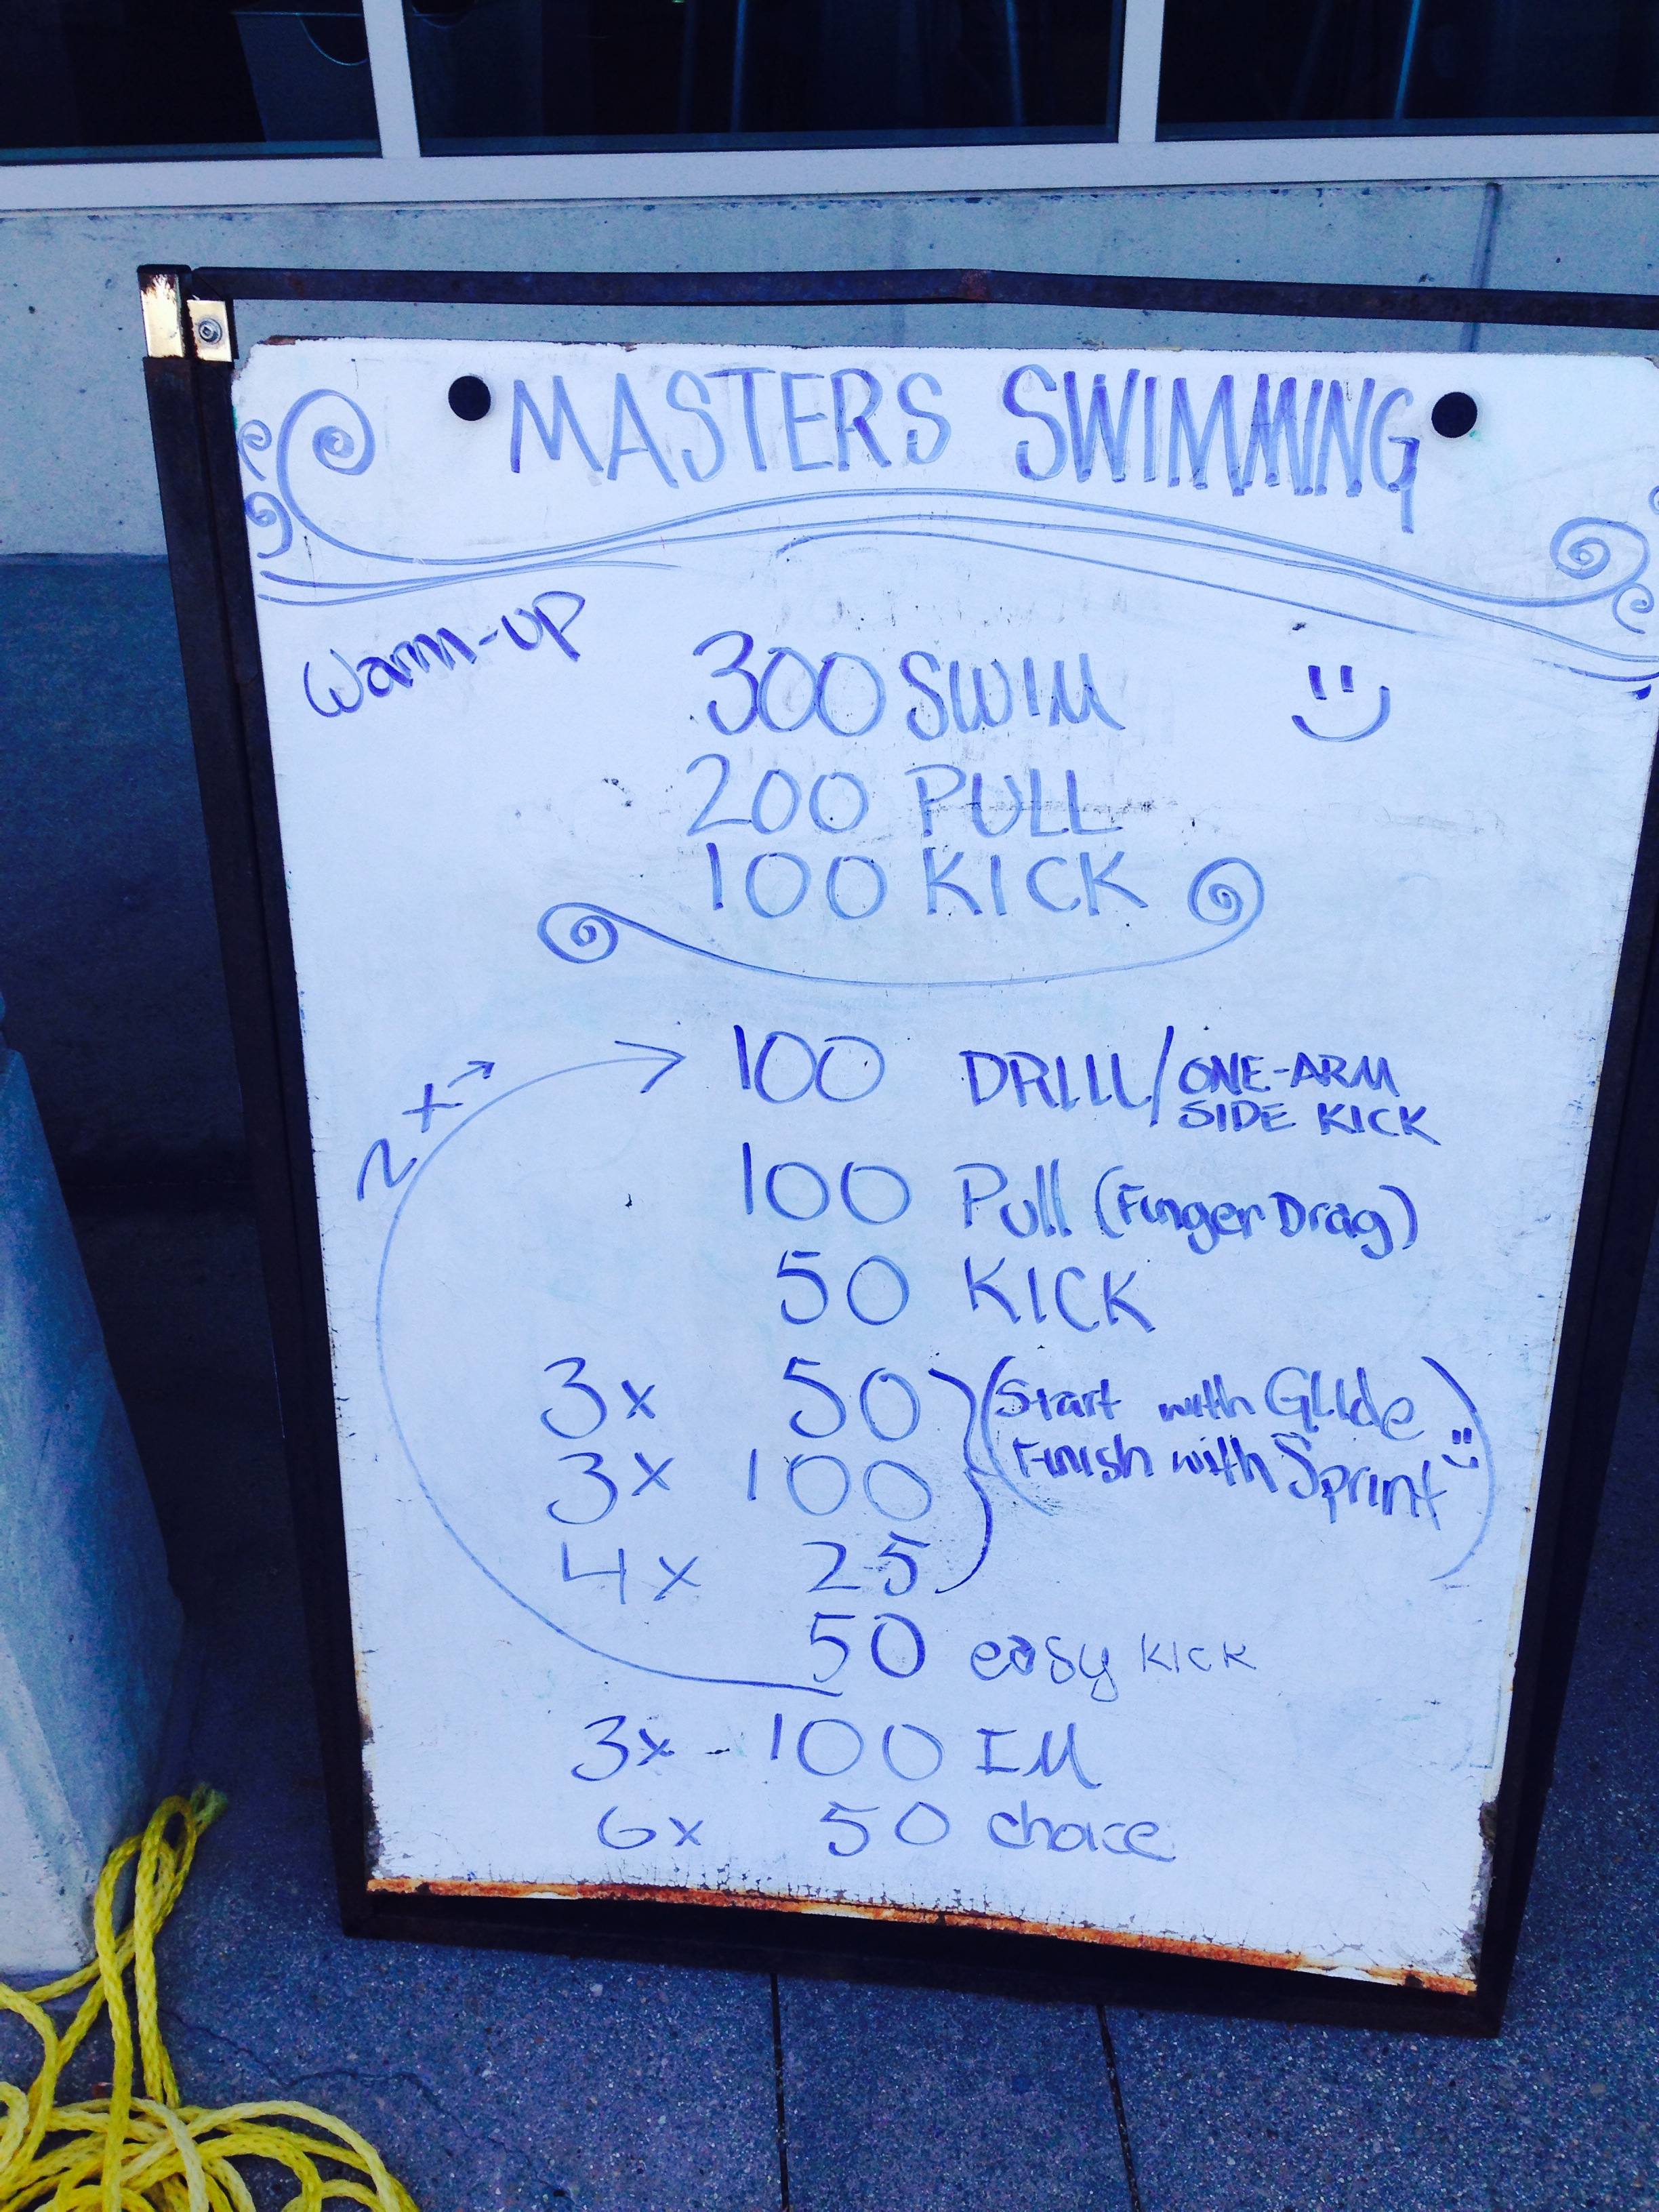 MASTERS SWIMMING
Warm-up
300 SWIM
200 PULL
100 KICK
2x
100 DRILL/ONE-ARM
SIDE KICK
100 Pull (Finger Drag)
50 KICK
3x 50 (Start with Glide
3x 100 Finish with Sprint)
4x 25
50 easy KICK
3x - 100 IM
6x 50 choice